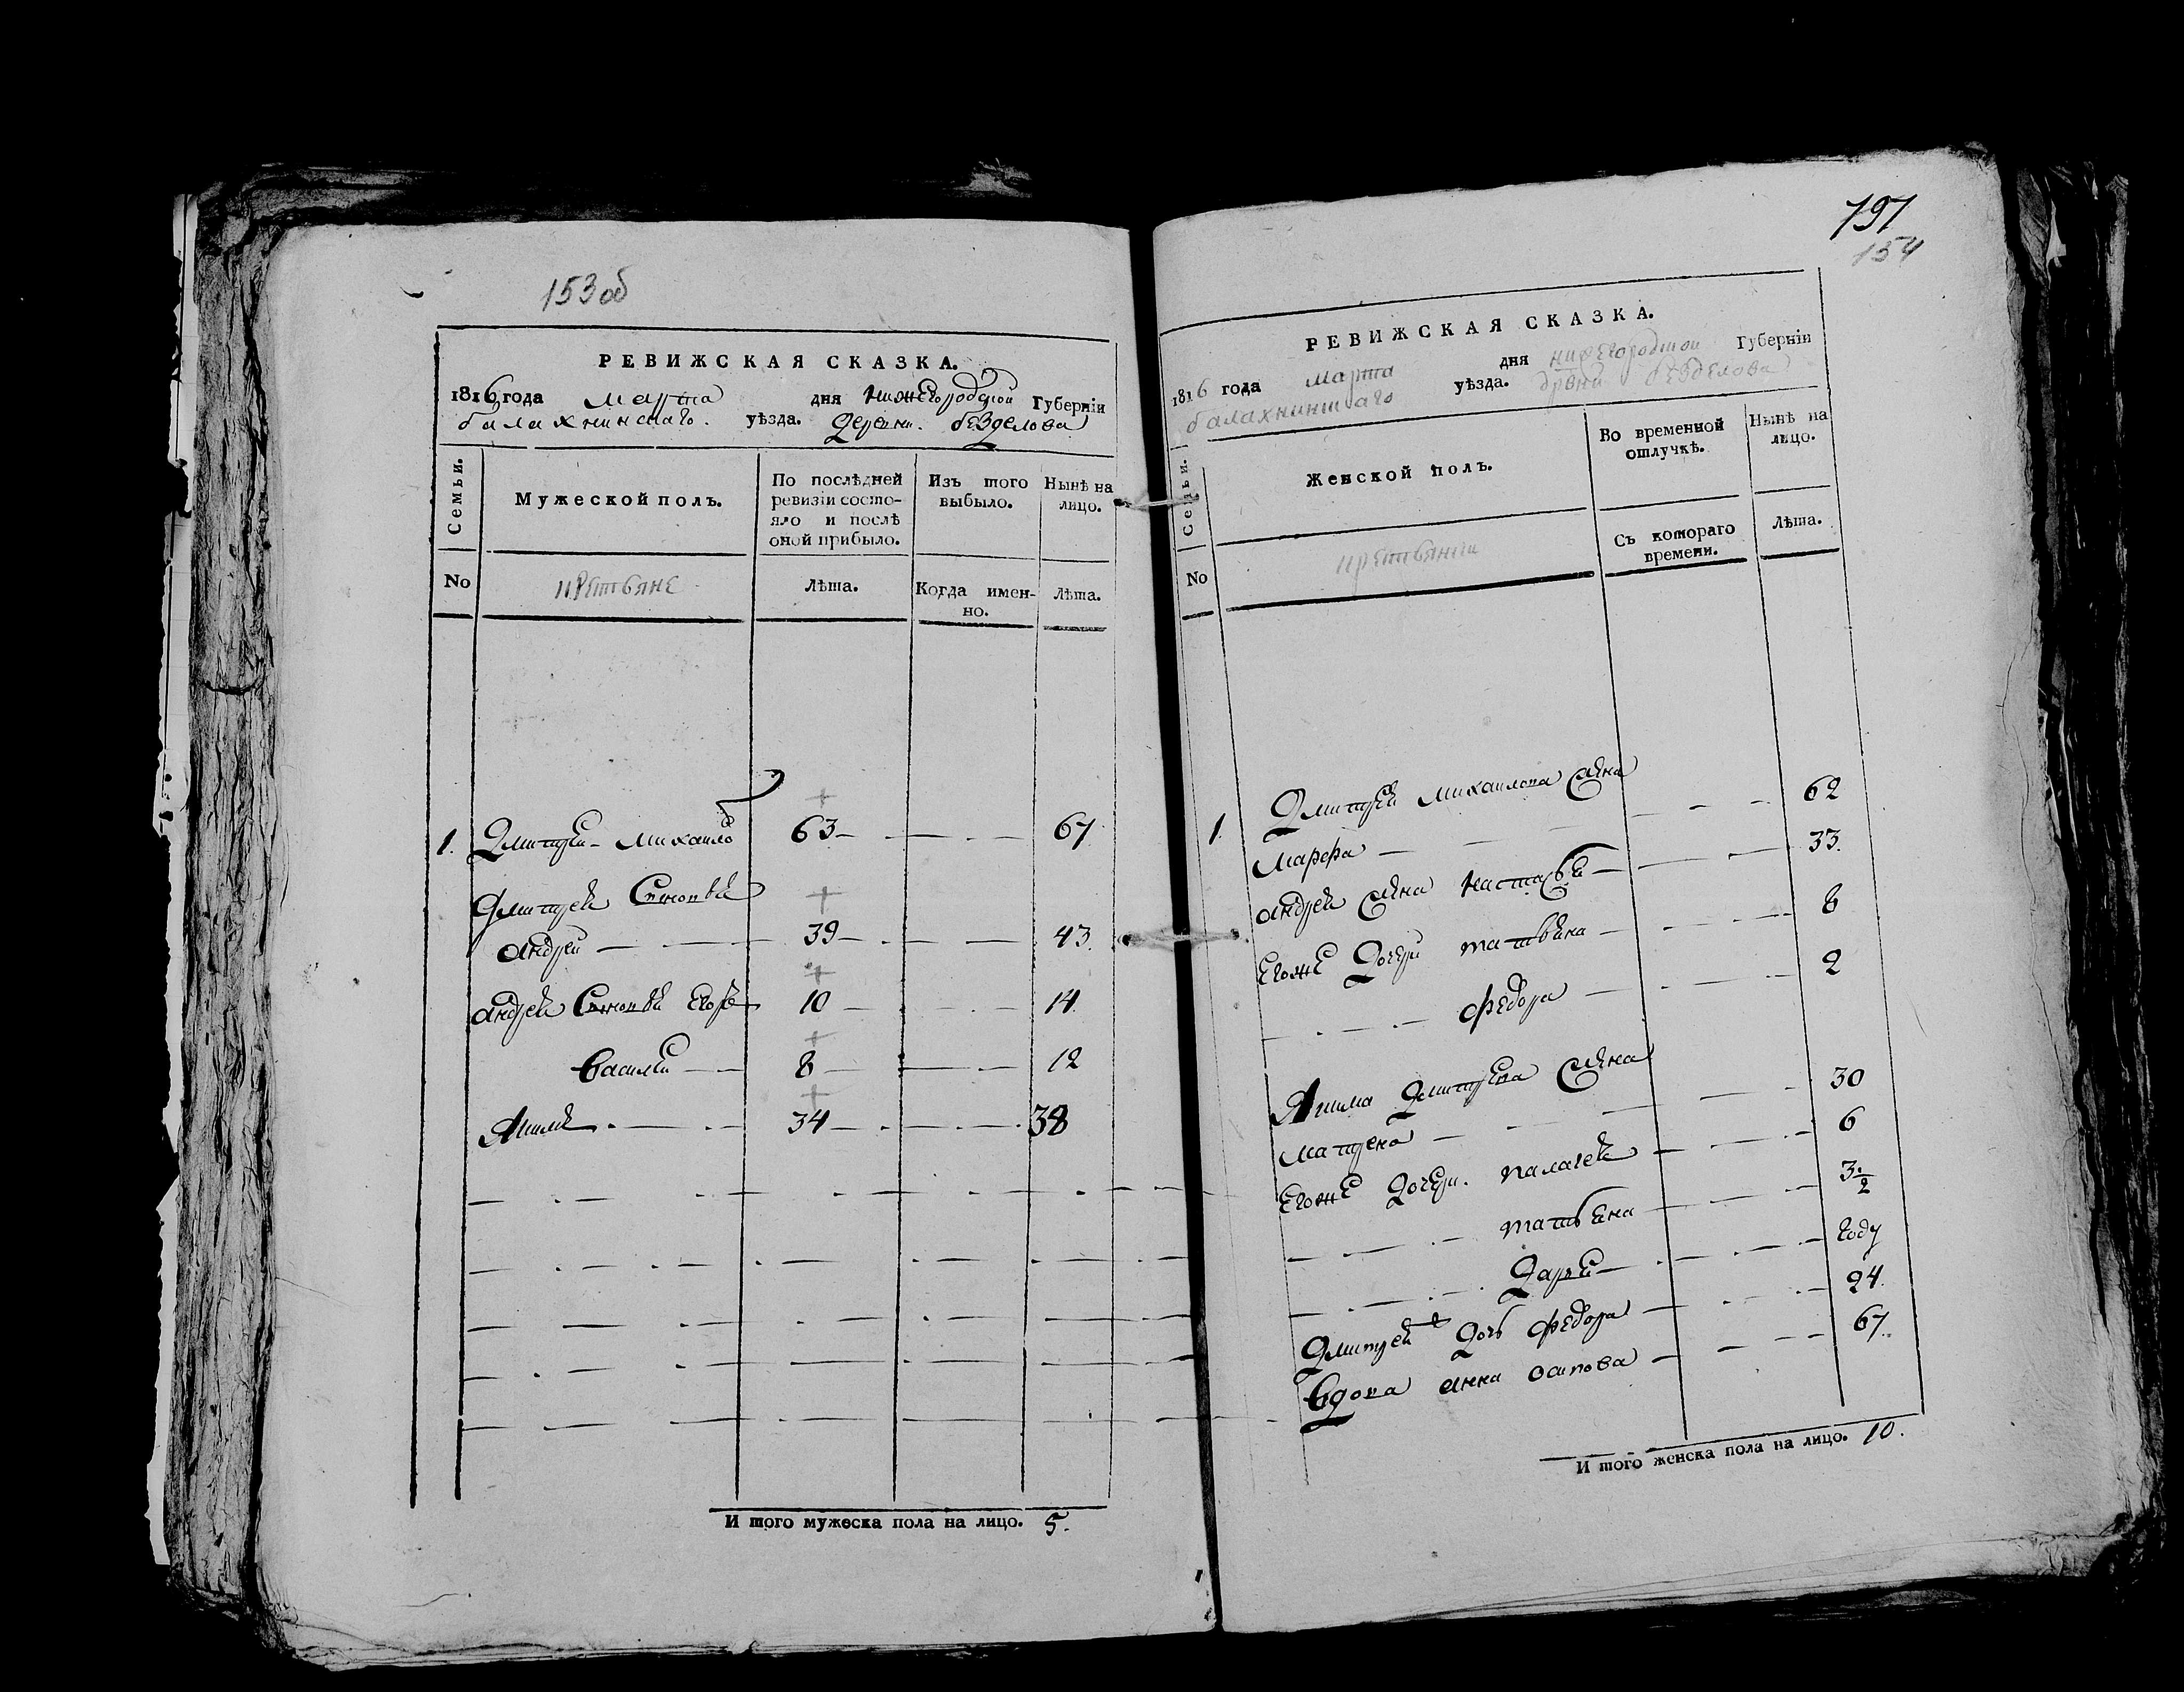 153 об
РЕВИЖСКАЯ СКАЗКА.
1816 года марта дня нижегородской Губернiи
балахнинскаго. уѣзда. деревни. безделова
Семьи.
Мужеской полъ.
По послѣдней ревизiи состо-
яло и послѣ оной прибыло.
Изъ того выбыло.
Нынѣ на лицо.
No
крестьяне
Лѣта.
Когда имен-
но.
Лѣта.
1. Дмитрей Михаило 63 67
Дмитрея
андрей 39 43.
андрея Егоръ 10 14
василей 8 12
34 38
И того мужеска пола на лицо. 5.
797
154
РЕВИЖСКАЯ СКАЗКА.
1816 года марта дня нижегородской Губернiи
балахнинскаго уѣзда. дрвни безделова
Семьи.
Женской полъ.
Во временной отлучкѣ.
Нынѣ на лицо.
No
Съ котораго времени.
Лѣта.
1. Дмитрея михаилова жена
марфа 62
андрея жена настасья 33.
Егоже дочери татьяна 8
федора 2
Дмитрева жена
матрена 30
Егоже дочери. палагея 6
татьяна 3 1/2
Дарья году
Дмитрея дочь федора 24.
вдова анна осипова 67.
И того женска пола на лицо. 10.